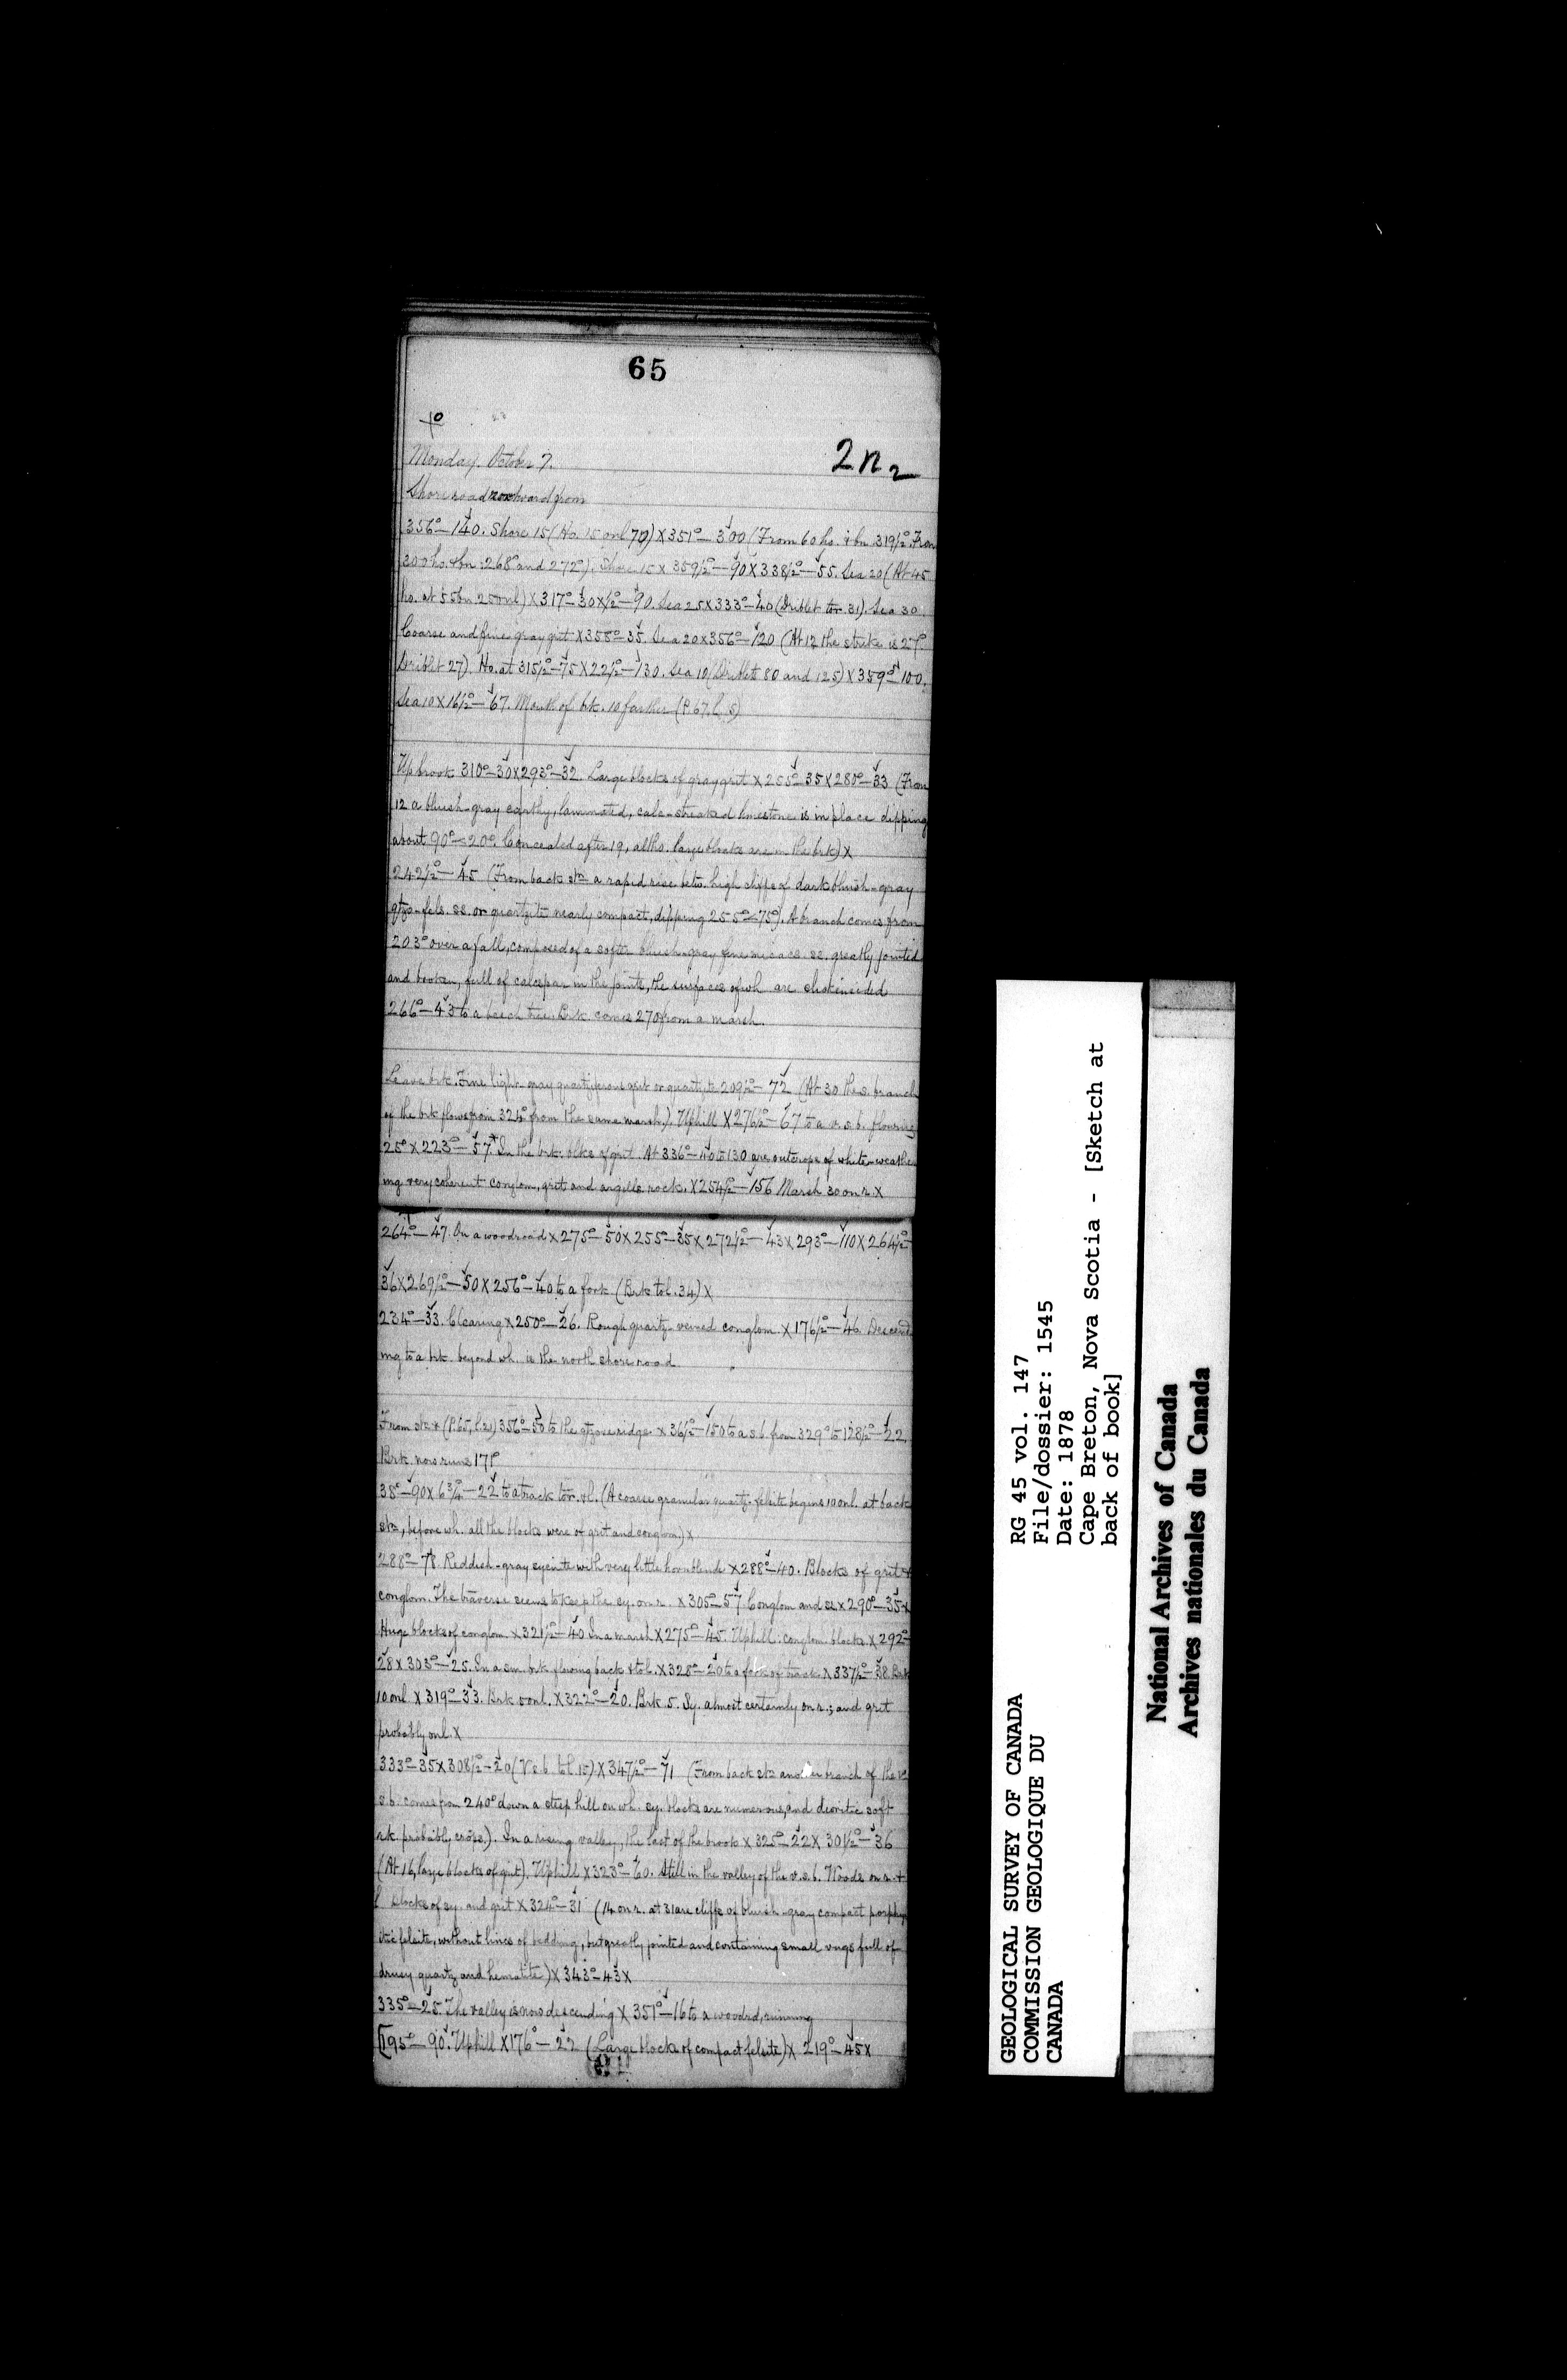 65
+o
2n2
Monday. October 7.
Shore road northward from
356°—140. Shore 15 (Ho. 15 onl 70) X 351°—300 (From 60 ho. & bn 319½°. From
200 ho. & bn 268° and 272°). Shore 15 X 359½°—90 X 338½°—55. Sea 20 (At 45
ho. at 55 bn 25 onl) X 317°—30 X ½°—90. Sea 25 X 333°—40 (Driblet to r 31). Sea 30.
Coarse and fine gray grit X 358°—35. Sea 20 X 356°—120 (At 12 the strike is 27°.
Driblet 27). Ho. at 315½°—75 X 22½°—130. Sea 10 (Driblets 80 and 125) X 359°—100.
Sea 10 X 16½°—67. Mouth of brk. 10 farther (P. 67. l. 5)
Up brook 310°—30 X 293°—32. Large blocks of gray grit X 255°—35 X 280°—33 (From
12 a bluish-gray earthy, laminated, calc-streaked limestone is in place dipping
about 90°<20°. Concealed after 19, altho. large blocks are in the brk) X
242½°—45 (From back stn a rapid rise betw. high cliffs of dark bluish-gray
qtzo-fels. ss. or quartzite nearly compact, dipping 255°<75°). A branch comes from
203° over a fall, composed of a softer bluish-gray fine micace. ss. greatly jointed
and broken, full of calcspar in the joints, the surfaces of wh. are slickensided
266°—43 to a beech tree. Brk. comes 270 from a marsh.
Leave brk. Fine light-gray quartziferous grit or quartzite 209½°—72 (At 30 the s. branch
of the brk flows from 324° from the same marsh.). Uphill X 276½°—67 to a v.s.b. flowing
25° X 223°—57*. In the brk. blks of grit. At 336°—110 to 130 are outcrops of white-weather
ing very coherent conglom, grit and argillo rock. X 254½°—156 Marsh 30 on r. X
264°—47. On a woodroad X 275°—50 X 255°—35 X 272½°—43 X 293°—110 X 264½°—
36 X 269½°—50 X 256°—40 to a fork (Brk to l. 34) X
234°—33. Clearing X 250°—26. Rough quartz-veined conglom. X 176½°—46 Descend
ing to a brk. beyond wh. is the north shore road.
From stn * (P. 65, l. 21) 356°—50 to the qtzose ridge. X 36½°—150 to a s.b. from 329° to 128½°—22.
Brk. now runs 171°
38°—90 X 6¾°—22 to a track to r. & l. (A coarse granular quartz-felsite begins 10 onl. at back
stn, before wh. all the blocks were of grit and conglom) X
288°—78. Reddish-gray syenite with very little hornblende X 288°—40. Blocks of grit &
conglom. The traverse seems to keep the sy. on r. X 305°—57 Conglom and ss X 290°—35 X
Huge blocks of conglom. X 321½°—40 In a marsh X 275°—45. Uphill: conglom. blocks. X 292°—
28 X 303°—25. In a sm. brk flowing back & to l. X 328°—20 to a fork of track X 337½°—38. Brk
10 onl X 319°—33. Brk 5 onl. X 322°—20. Brk 5. Sy. almost certainly on r.; and grit
probably onl. X
333°—35 X 308½°—20 (V.s.b. to l. 15) X 347½°—71 (From back stn another branch of the v.
s.b. comes from 240° down a steep hill on wh. sy. blocks are numerous, and dioritic soft
rk. probably crops.). In a rising valley, the last of the brook X 325°—22 X 301½°—36
(At 16, large blocks of grit). Uphill X 323°—60. Still in the valley of the v.s.b. Woods on r. &
l. Blocks of sy. and grit X 324°—31 (14 on r. at 31 are cliffs of bluish-gray compact porphy
itic felsite, without lines of bedding, but greatly jointed and containing small vugs full of
drusy quartz and hematite) X 343°—43 X
335°—25. The valley is now descending X 351°—16 to a woodrd, running
[195°—90. Uphill X 176°—22 (Large blocks of compact felsite) X 219°—45 X
GEOLOGICAL SURVEY OF CANADA
COMMISSION GEOLOGIQUE DU
CANADA
RG 45 vol. 147
File/dossier: 1545
Date: 1878
Cape Breton, Nova Scotia - [Sketch at
back of book]
National Archives of Canada
Archives nationales du Canada